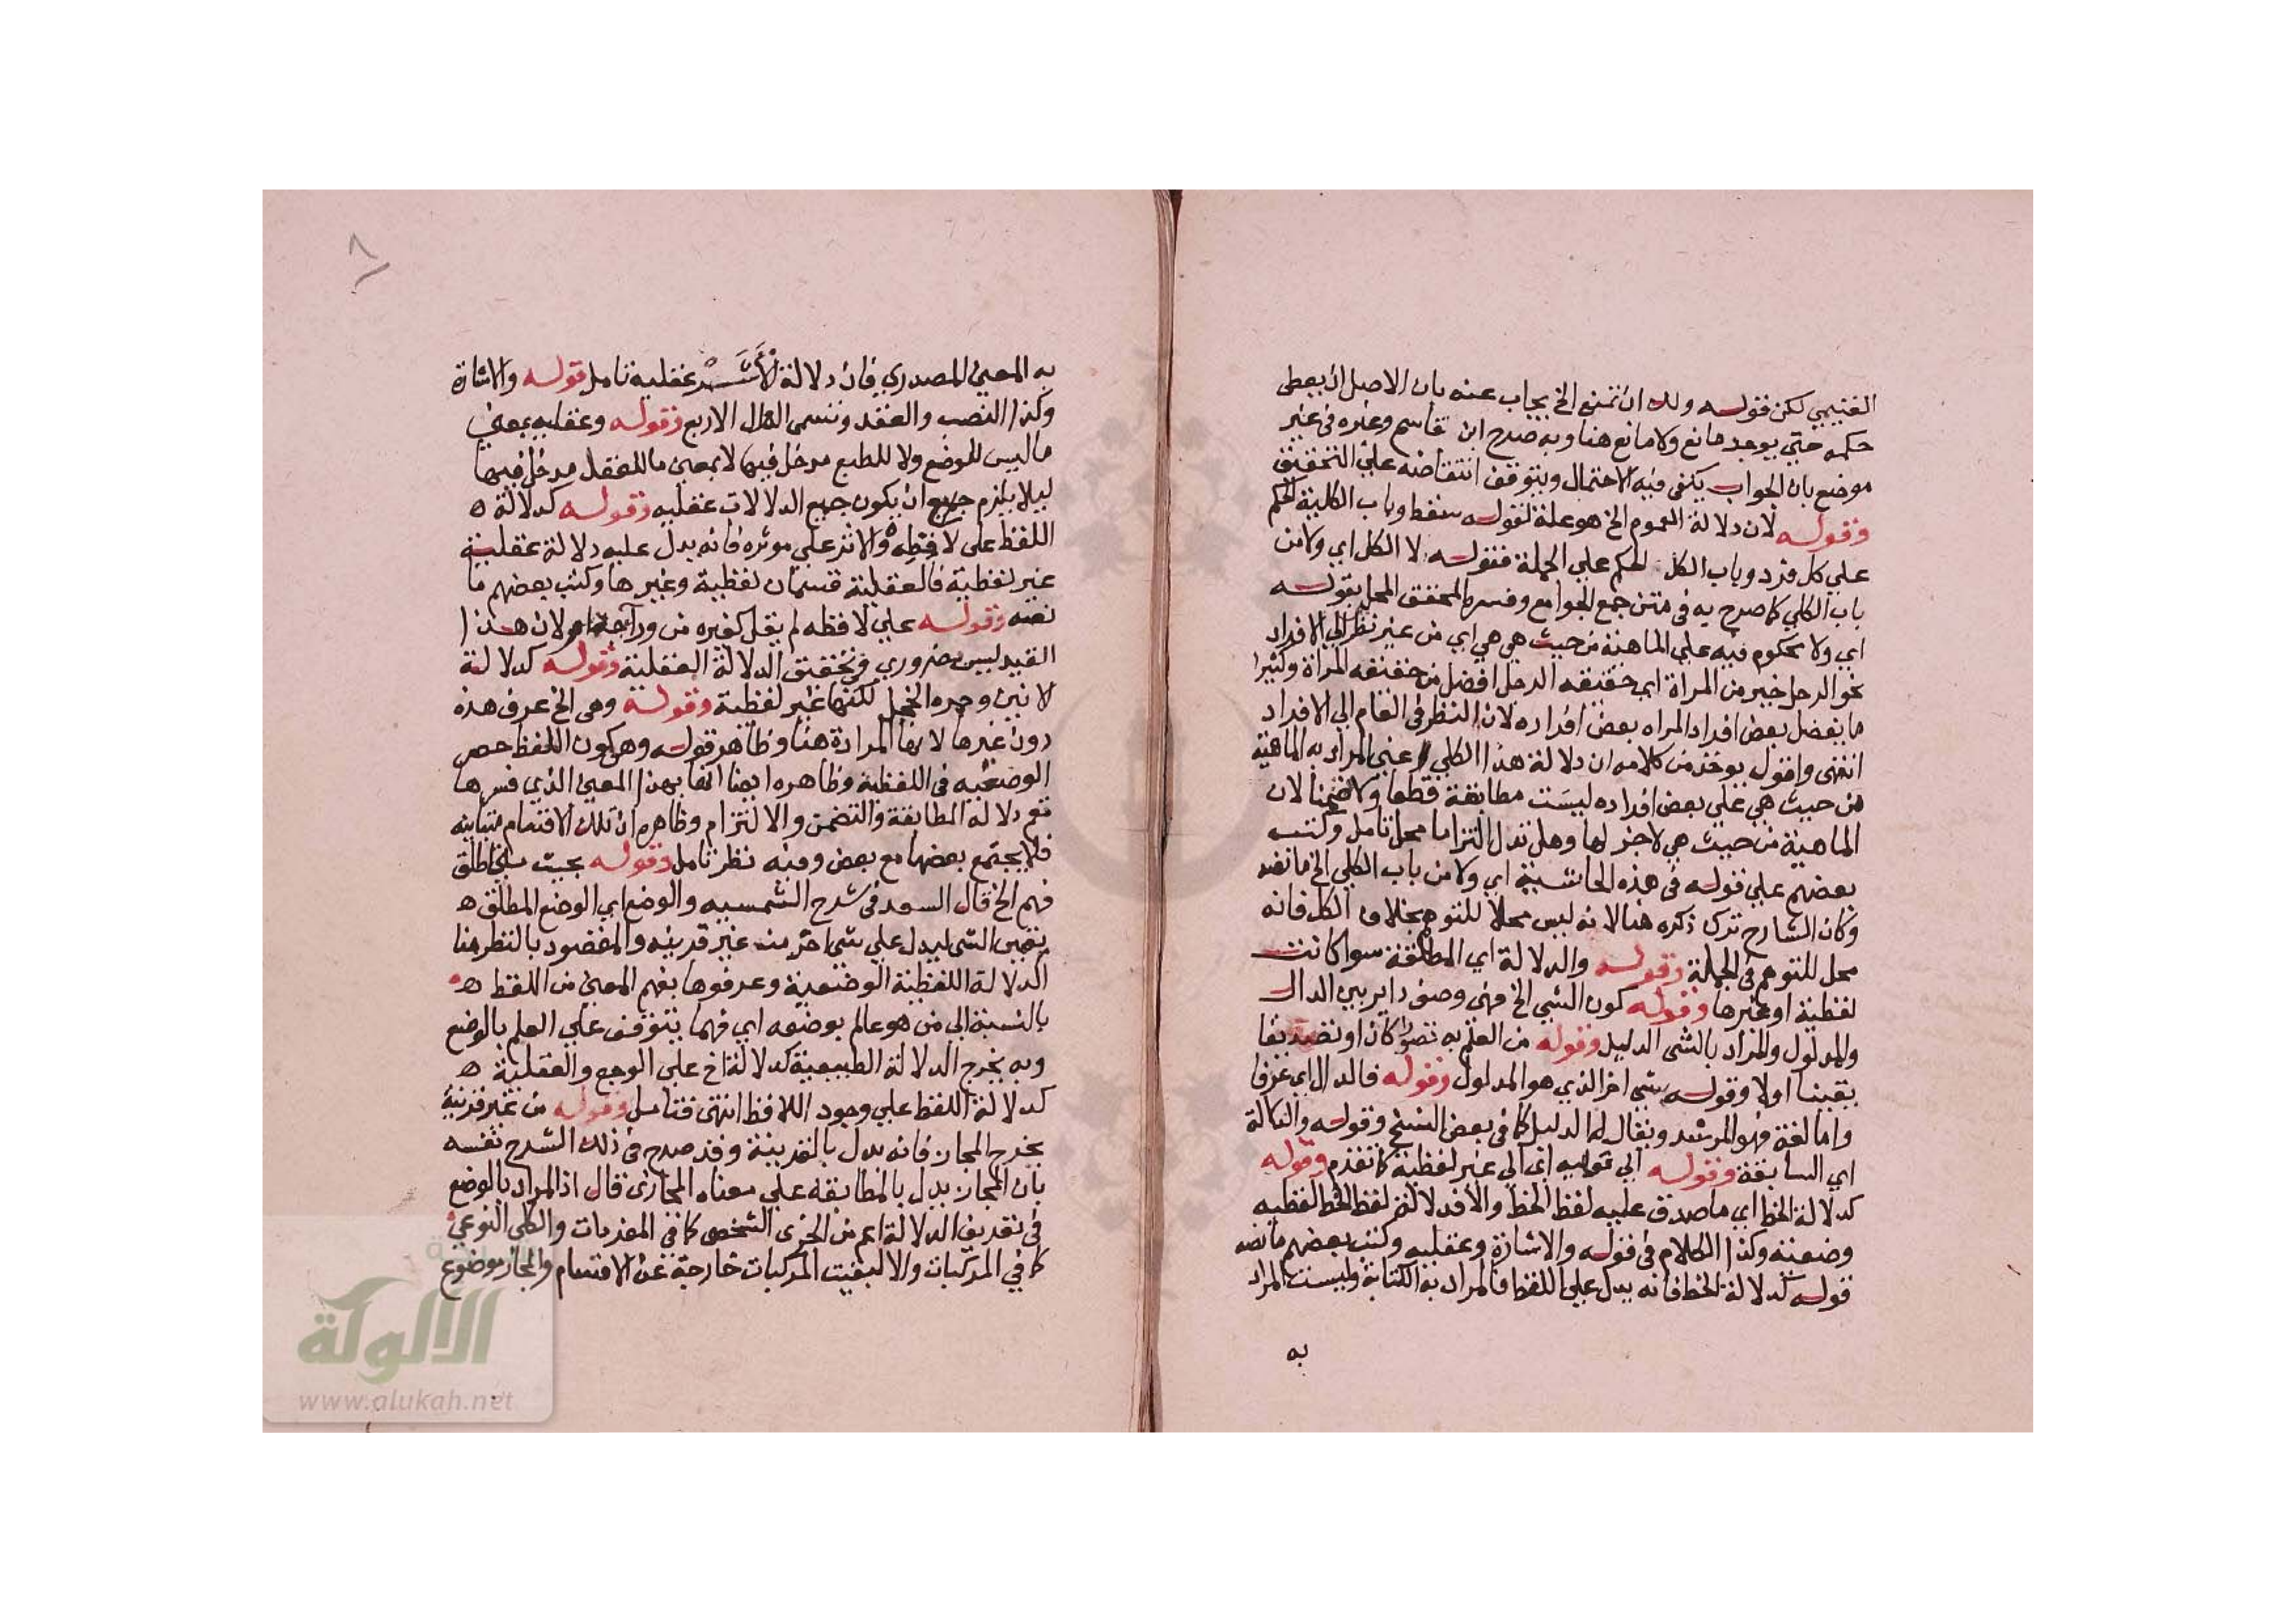 الغنيمي لكن فقوله ولك ان تمنع الخ يجاب عنه بان الاصل ان يعطى
حكمه حتي يوجد مانع ولا مانع هنا وبه صرح ابن قاسم وغيره في غير
موضع بان الجواب يكفي فيه الاحتمال ويتوقف انتقاضه علي التحقيق
وقوله لان دلالة العموم الخ هو علة لقوله سقط وباب الكلية الحكم
علي كل فرد وباب الكل الحكم علي الجملة فقوله لا الكل اي ولا من
باب الكلي كما صرح به في متن جمع الجوامع وفسره المحقق المحلي بقوله
اي ولا محكوم فيه علي الماهية من حيث هي هي اي من غير نظر الي الافراد
نحو الرجل خير من المراة اي حقيقه الرجل افضل من حقيقه المراة وكثيرا
ما يفضل بعض افراد المراه بعض افراده لان النظر في العام الي الافراد
انتهى واقول يوخذ من كلامه ان دلالة هذا الكلي اعني المراد به الماهية
من حيث هي علي بعض افراده ليست مطابقة قطعا ولا تضمنا لان
الماهية من حيث هي لا جزء لها وهل تدل التزاما محل تامل وكتب
بعضهم علي قوله في هذه الحاشية اي ولا من باب الكلي الخ ما نصه
وكان الشارح ترك ذكره هنا لانه ليس محلا للتوهم بخلاف الكل فانه
محل للتوهم في الجملة وقوله والدلالة اي المطلقة سوا كانت
لفظية او غيرها وقوله كون الشي الخ فهي وصف داير بين الدال
والمدلول والمراد بالشي الدليل وقوله من العلم به تصورا كان او تصديقا
يقينا اولا وقوله بشي اخر الذي هو المدلول وقوله فالدال اي عرفا
واما لغة فهو المرشد ويقال له الدليل كما في بعض النسخ وقوله والدلالة
اي السابقة وقوله الي قوليه اي الي غير لفظية كما تقدم وقوله
كدلالة الخط اي ما صدق عليه لفظ الخط والا فدلالة لفظ الخط لفظيه
وضعية وكذا الكلام في قوله والاشارة وعقليه وكتب بعضهم ما نصه
قوله كدلالة الخط فانه يدل علي اللفظ فالمراد به الكتابة وليست المراد
به
٨
به المعني المصدري فان دلالة الاثر عقلية تامل قوله والاشارة
وكذا النصب والعقد وتسمى الدوال الاربع وقوله وعقليه بمعني
ما ليس للوضع ولا للطبع مدخل فيها لا بمعني ما للعقل مدخل فيها
ليلا يلزم جميع ان يكون جميع الدلالات عقليه وقوله كدلالة ه
اللفظ علي لافظه والاثر علي موثره فانه يدل عليه دلالة عقلية
غير لفظية فالعقلية قسمان لفظية وغيرها وكتب بعضهم ما
نصه وقوله علي لافظه لم يقل كغيره من ورآ جدار لان هذا
القيد ليس ضروري في تحقيق الدلالة العقلية وقوله كدلالة
لانين وحمره الخجل لكنها غير لفظية وقوله وهي الخ عرف هذه
دون غيرها لانها المرادة هنا وظاهر قوله وهي كون اللفظ حصر
الوضعيه في اللفظية وظاهره ايضا انها بهذا المعني الذي فسرها
تعم دلالة المطابقة والتضمن والالتزام وظاهره ان تلك الاقسام متباينه
فلا يجتمع بعضها مع بعض وفيه نظر تامل وقوله بحيث متي اطلق
فهم الخ قال السعد في شرح الشمسيه والوضع اي الوضع المطلق ه
تعين الشي ليدل علي شي اخر من غير قرينه والمقصود بالنظر هنا
الدلالة اللفظية الوضعية وعرفوها بفهم المعني من اللفظ ه
بالنسبة الي من هو عالم بوضعه اي فهما يتوقف علي العلم بالوضع
وبه يخرج الدلالة الطبيعية كدلالة اخ علي الوجع والعقلية ه
كدلالة اللفظ علي وجود اللافظ انتهى فتامل وقوله من غير قرينة
يخرج المجاز فانه يدل بالقرينة وقد صرح في ذلك الشرح نفسه
بان المجاز يدل بالمطابقة علي معناه المجازي قال اذ المراد بالوضع
في تعريف الدلالة اعم من الجزي الشخصي كما في المفردات والكلي النوعي
كما في المركبات والا لبقيت المركبات خارجة عن الاقسام والمجاز موضوع
الالوكة
www.alukah.net